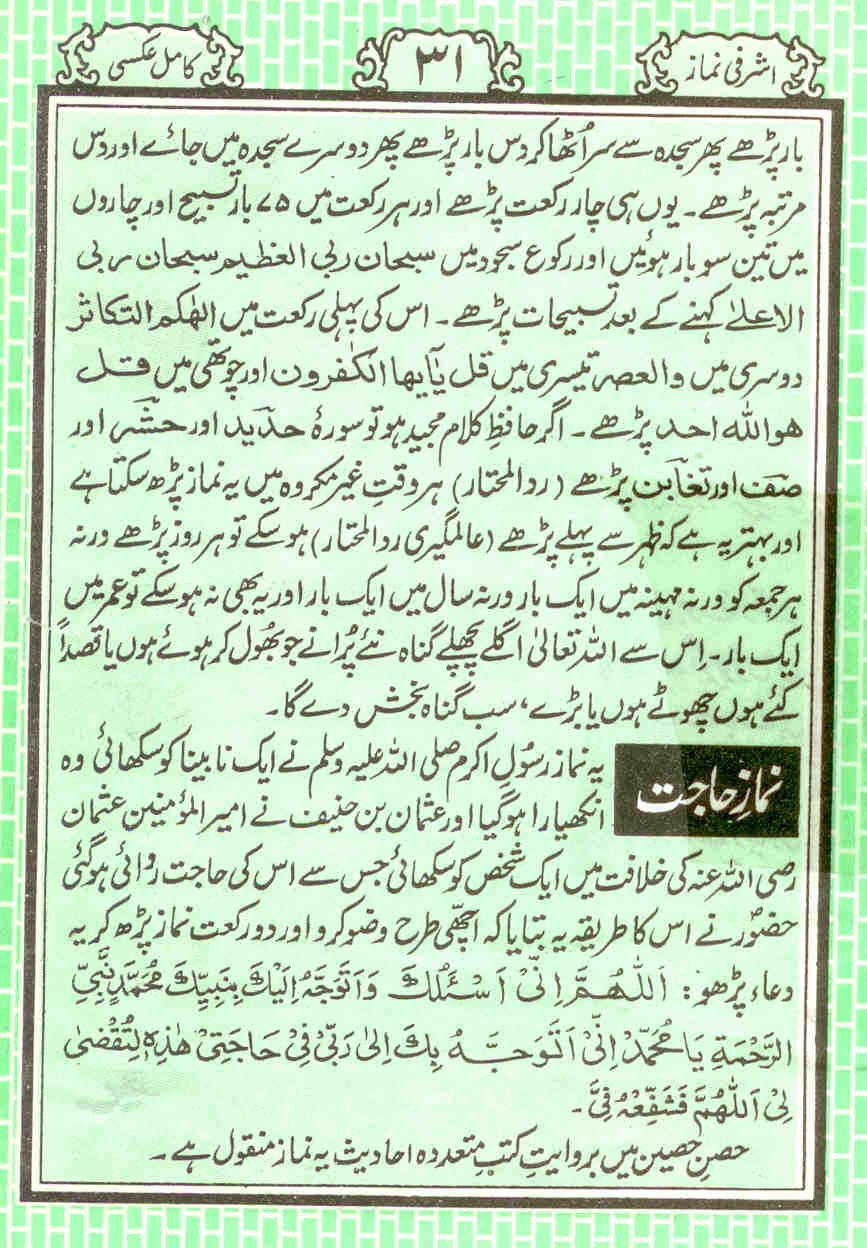 اشرفی نماز
۳۱
کامل عکسی
بار پڑھے پھر سجدہ سے سر اُٹھا کر دس بار پڑھے پھر دوسرے سجدہ میں جائے اور دس
مرتبہ پڑھے۔ یوں ہی چار رکعت پڑھے اور ہر رکعت میں ۷۵ بار تسبیح اور چاروں
میں تین سو بار ہوئیں اور رکوع سجود میں سبحان ربی العظیم سبحان ربی
الاعلےٰ کہنے کے بعد تسبیحات پڑھے۔ اس کی پہلی رکعت میں الھٰکم التکاثر
دوسری میں والعصر تیسری میں قل یٰٓایھا الکٰفرون اور چوتھی میں قل
ھو اللہ احد پڑھے۔ اگر حافظِ کلام مجید ہو تو سورۂ حدید اور حشر اور
صف اور تغابن پڑھے (ردالمحتار) ہر وقتِ غیر مکروہ میں یہ نماز پڑھ سکتا ہے
اور بہتر یہ ہے کہ ظہر سے پہلے پڑھے (عالمگیری ردالمحتار) ہو سکے تو ہر روز پڑھے ورنہ
ہر جمعہ کو ورنہ مہینہ میں ایک بار ورنہ سال میں ایک بار اور یہ بھی نہ ہو سکے تو عمر میں
ایک بار۔ اِس سے اللہ تعالیٰ اگلے پچھلے گناہ نئے پُرانے جو بھُول کر ہوئے ہوں یا قصداً
کئے ہوں چھوٹے ہوں یا بڑے، سب گناہ بخش دے گا۔
نمازِ حاجت
یہ نماز رسُولِ اکرم صلی اللہ علیہ وسلم نے ایک نابینا کو سکھائی وہ
انکھیارا ہو گیا اور عثمان بن حنیف نے امیر المؤمنین عثمان
رضی اللہ عنہ کی خلافت میں ایک شخص کو سکھائی جس سے اس کی حاجت روائی ہو گئی
حضورؐ نے اس کا طریقہ یہ بتایا کہ اچھّی طرح وضو کرو اور دو رکعت نماز پڑھ کر یہ
دعاء پڑھو: اَللّٰھُمَّ اِنِّیْ اَسْئَلُكَ وَاَتَوَجَّهُ اِلَیْكَ بِنَبِیِّكَ مُحَمَّدٍ نَّبِیِّ
الرَّحْمَةِ یَا مُحَمَّدُ اِنِّیْ اَتَوَجَّهُ بِكَ اِلٰی رَبِّیْ فِیْ حَاجَتِیْ ھٰذِهٖ لِتُقْضٰی
لِیْ اَللّٰھُمَّ فَشَفِّعْهُ فِیَّ۔
حصنِ حصین میں بروایتِ کتبِ متعددہ احادیث یہ نماز منقول ہے۔